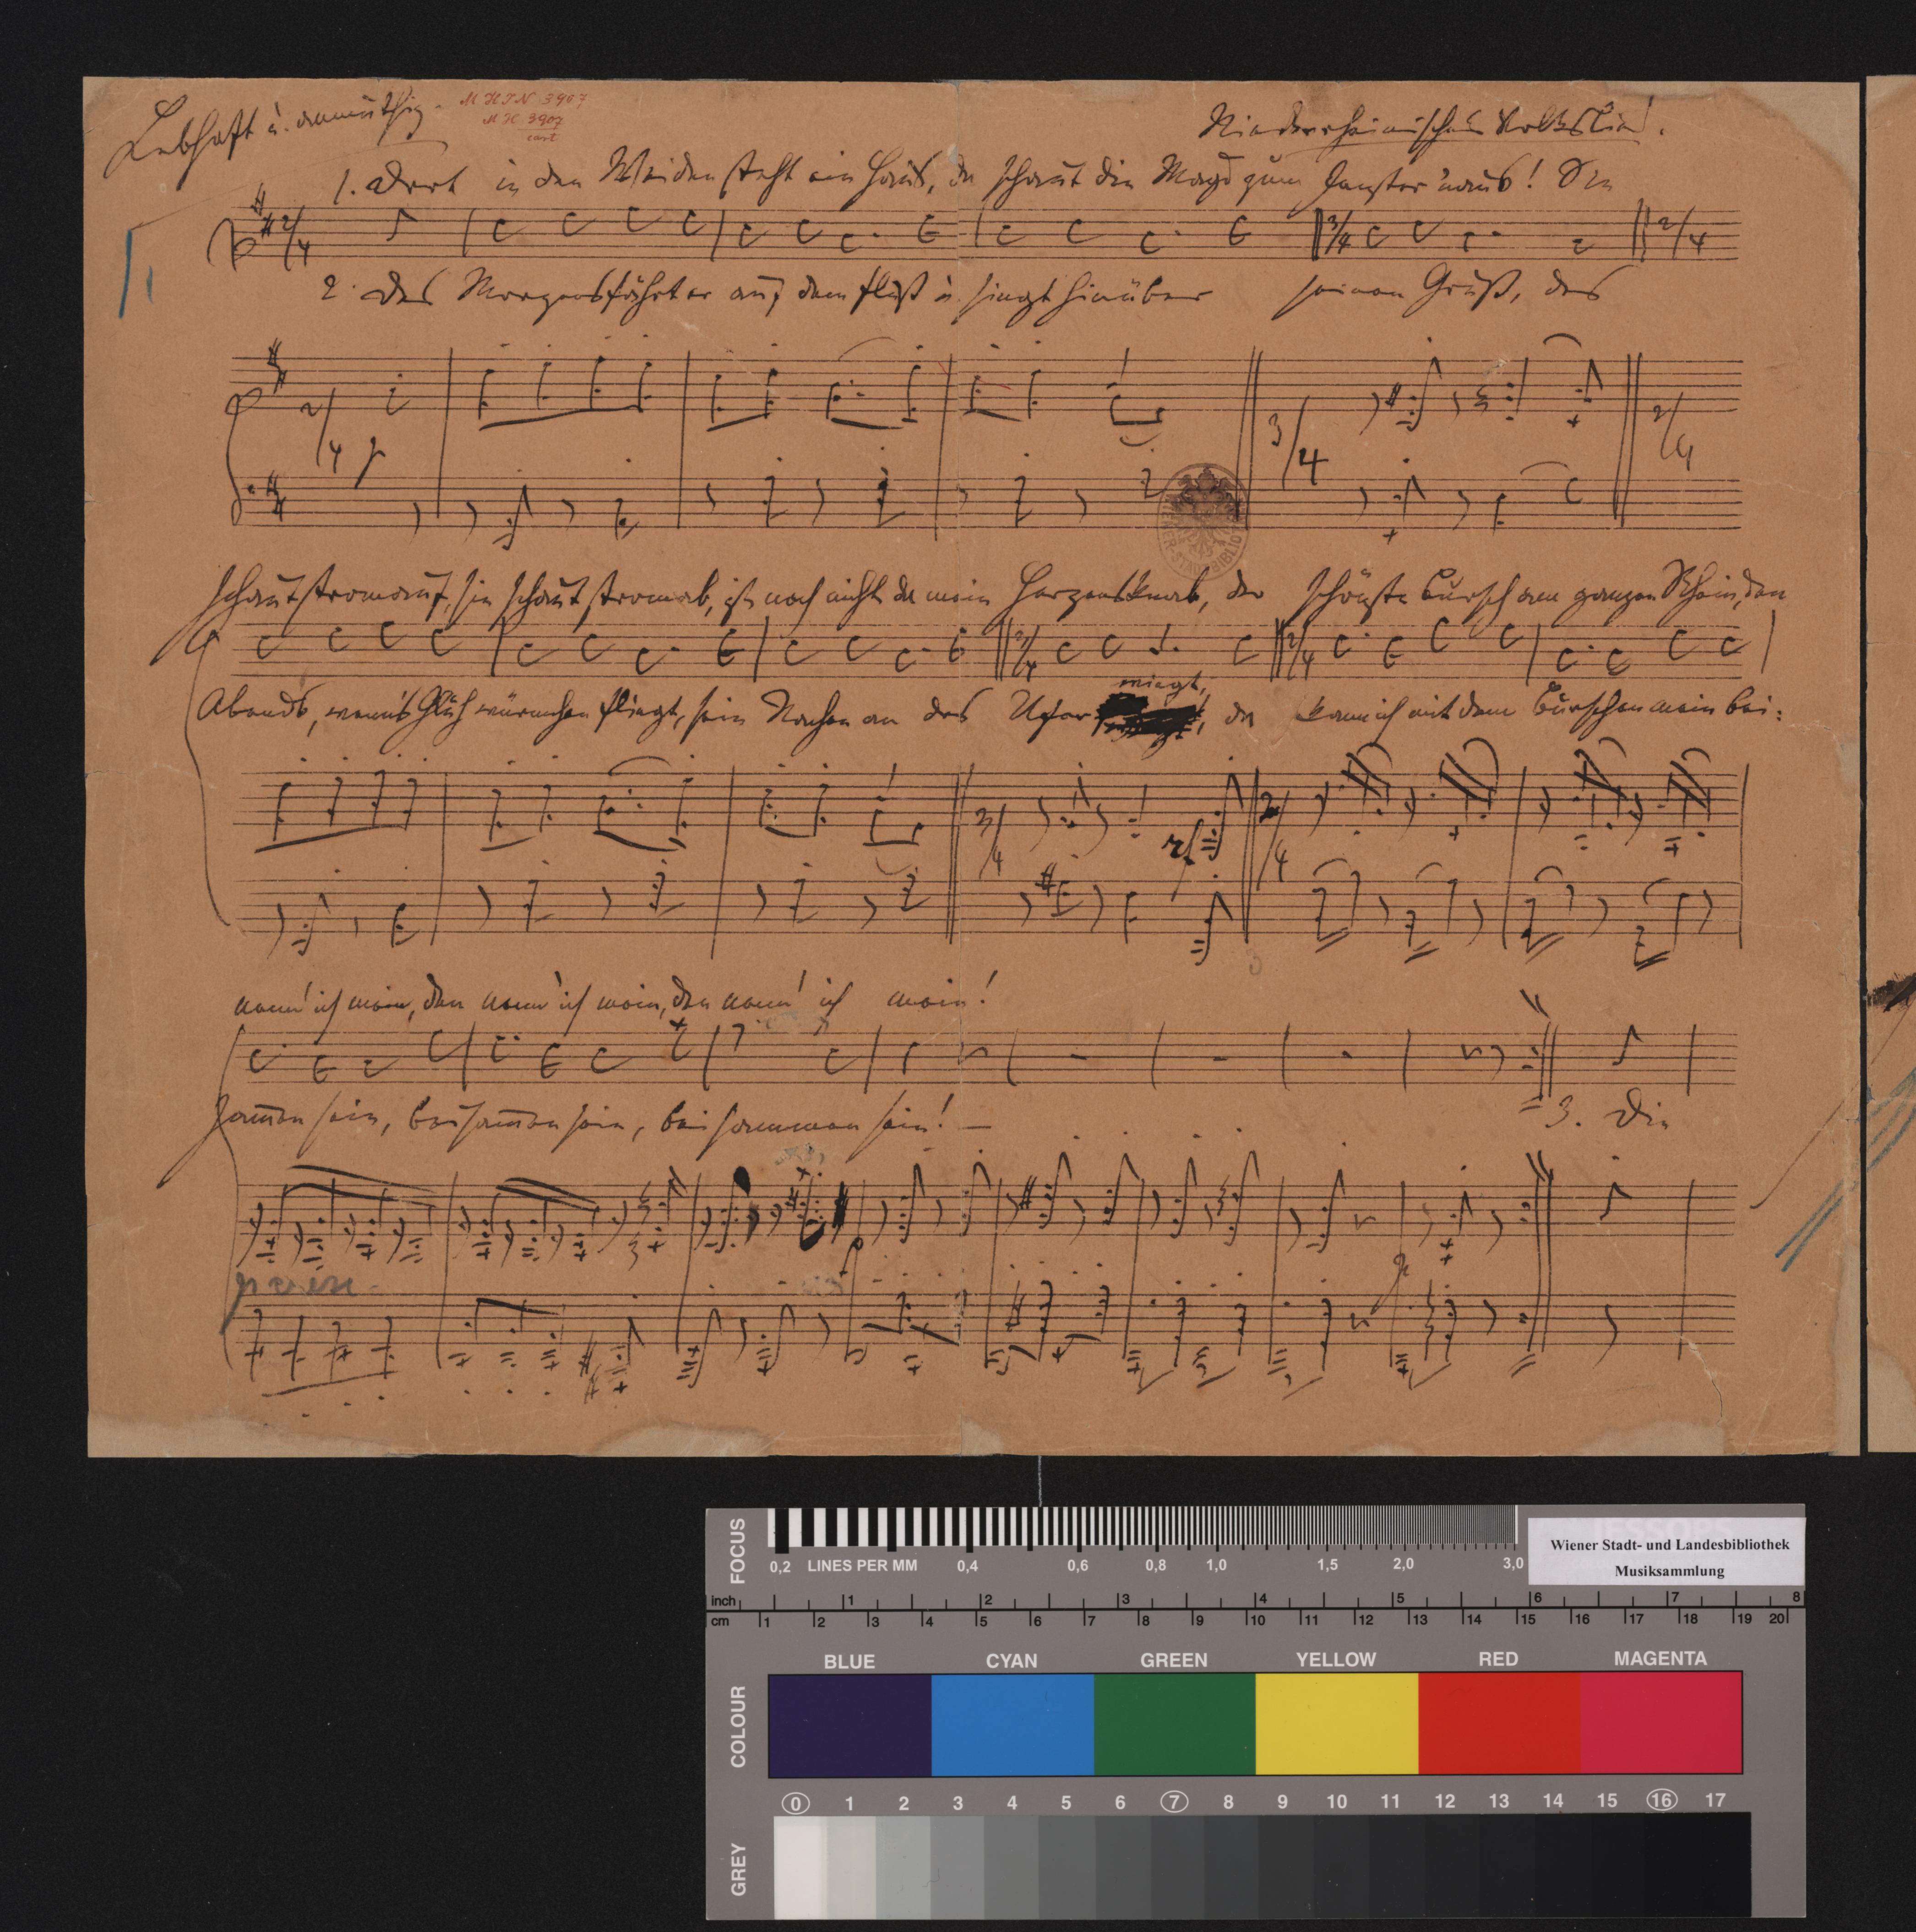 Lebhaft u. anmüthig.
M H I N 3907
M H 3907
Niederrheinisches Volkslied.
1. Dort in den Weiden steht ein Haus, da schaut die Magd zum Fenster 'naus! Sie
2/4
3/4
2/4
2. Des Morgens fährt er auf dem Fluß u. singt hinüber seinen Gruß, des
2/4 p
3/4
2/4
schaut stromauf, sie schaut stromab, ist noch nicht da mein Herzensknab, der schönste Bursch am ganzen Rhein, den
3/4
2/4
wiegt,
Abends, wenn's Glühwürmchen fliegt, sein Nachen an das Ufer da kann ich mit dem Burschen mein bei:
3/4
2/4
nenn' ich mein, den nenn' ich mein, den nenn' ich mein!
sam̄en sein, beisam̄en sein, beisammen sein! –
3. Die
p
WIENER STADTBIBLIO
FOCUS
0,2 LINES PER MM 0,4 0,6 0,8 1,0 1,5 2,0 3,0
Wiener Stadt- und Landesbibliothek
Musiksammlung
inch 1 2 3 4 5 6 7 8
cm 1 2 3 4 5 6 7 8 9 10 11 12 13 14 15 16 17 18 19 20
COLOUR
BLUE CYAN GREEN YELLOW RED MAGENTA
0 1 2 3 4 5 6 7 8 9 10 11 12 13 14 15 16 17
GREY